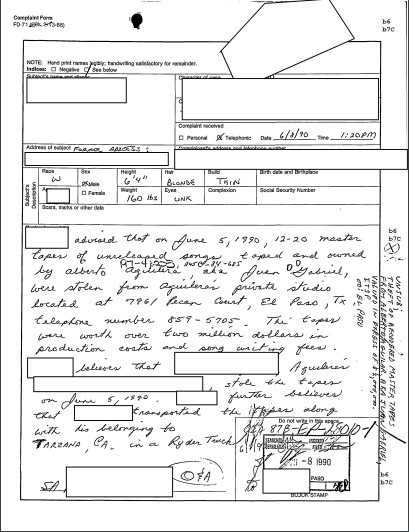 Complaint Form
FD-71
b6
b7C
NOTE: Hand print names legibly; handwriting satisfactory for remainder.
Indices: Negative See below
Subject's name and
Character of case
Complaint received
Personal Telephonic Date 6/8/90 Time 1:20PM
Address of subject FORMER ADDRESS: Complainant's address and telephone number
Subject's Description
Race W Sex Male Female Height 6'4" Hair BLONDE Build THIN Birth date and Birthplace
Age Weight 160 lbs Eyes UNK Complexion Social Security Number
Scars, marks or other data
advised that on June 5, 1990, 12-20 master
tapes of unreleased songs taped and owned
by Alberto Aguilera, aka Juan Gabriel,
were stolen from Aguilera's private studio
located at 7961 Pecan Court, El Paso, TX
telephone number 859-5705. The tapes
were worth over two million dollars in
production costs and song writing fees.
believes that Aguilera's
stole the tapes
on June 5, 1990. further believes
that transported the tapes along
with his belonging to
TARZANA, CA. in a Ryder Truck
b6
b7C
UNSUB
THEFT OF RECORDED MASTER TAPES
ITSP
OO: EL PASO
Do not write in this space.
8 1990
PASO
BLOCK STAMP
SA,
O & A
b6
b7C